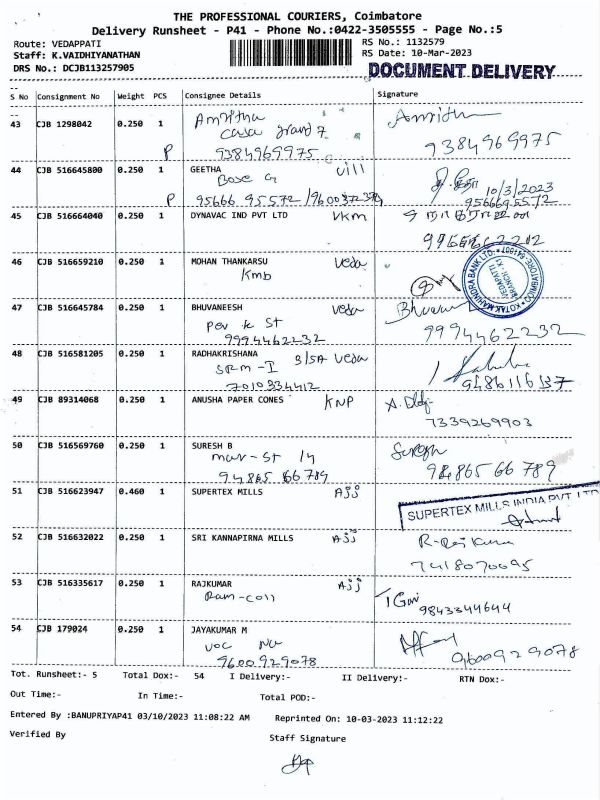 THE PROFESSIONAL COURIERS, Coimbatore
Delivery Runsheet - P41 - Phone No.:0422-3505555 - Page No.:5
Route: VEDAPPATI RS No.: 1132579
Staff: K.VAIDHIYANATHAN RS Date: 10-Mar-2023
DRS No.: DCJB113257905 DOCUMENT DELIVERY
S No Consignment No Weight PCS Consignee Details Signature
43 CJB 1298042 0.250 1 Amritha Amritha
casa grand 7
P 9384969975 9384969975
44 CJB 516645800 0.250 1 GEETHA vill
Bose G 10/3/2023
P 95666 95572 / 9566695572
45 CJB 516664040 0.250 1 DYNAVAC IND PVT LTD VKM
46 CJB 516659210 0.250 1 MOHAN THANKARSU Veda
Kmb
KOTAK MAHINDRA BANK LTD. VEDAPATTI BRANCH, COIMBATORE 641007
47 CJB 516645784 0.250 1 BHUVANEESH Veda
per k St
9994462232 9994462232
48 CJB 516581205 0.250 1 RADHAKRISHANA 3/5A Veda
SRM - I
7010334412 9486116137
49 CJB 89314068 0.250 1 ANUSHA PAPER CONES KNP
7339269903
50 CJB 516569760 0.250 1 SURESH B Suresh
mar-St 14
94865 66 789 94865 66 789
51 CJB 516623947 0.460 1 SUPERTEX MILLS Ajj SUPERTEX MILLS INDIA PVT LTD
52 CJB 516632022 0.250 1 SRI KANNAPIRNA MILLS Ajj
7418070095
53 CJB 516335617 0.250 1 RAJKUMAR Ajj
Ram-coll 9843344644
54 CJB 179024 0.250 1 JAYAKUMAR M
VOC Nr
9600929078 9600929078
Tot. Runsheet:- 5 Total Dox:- 54 I Delivery:- II Delivery:- RTN Dox:-
Out Time:- In Time:- Total POD:-
Entered By :BANUPRIYAP41 03/10/2023 11:08:22 AM Reprinted On: 10-03-2023 11:12:22
Verified By Staff Signature